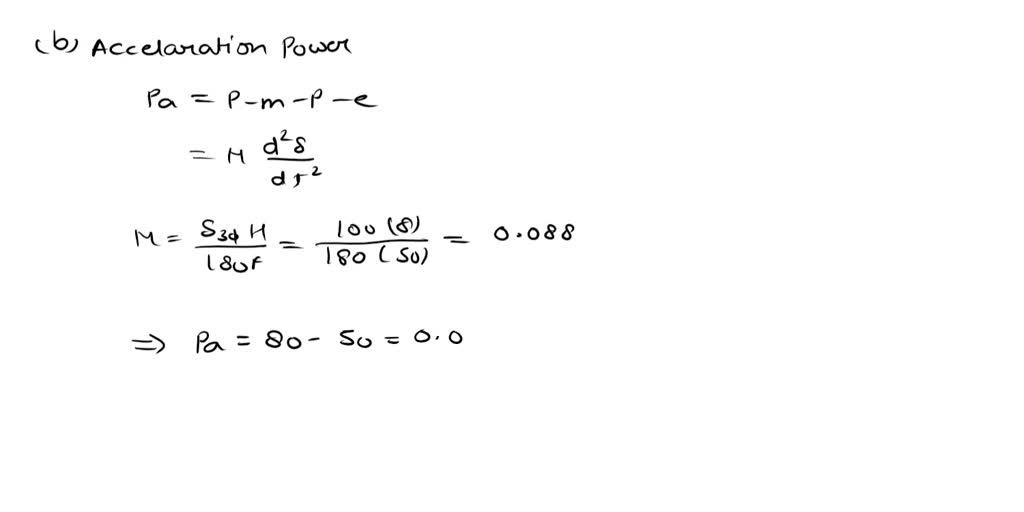 (b) Accelaration Power
Pa = P-m-P-e
= M d²δ/dt²
M = S3φ H/180F = 100(8)/180(50) = 0.088
⇒ Pa = 80 - 50 = 0.0